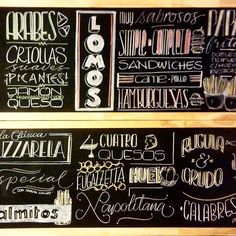 ARABES
CRIOLLAS
suaves
¡PICANTES!
JAMÓN
QUESO
LOMOS
MUY sabrosos
SIMPLE-COMPLETO
SANDWICHES
carne-POLLO
HAMBURGUESAS
PAPA
frita
la Clásica
UZZARELLA
especial
almitos
4 CUATRO
QUESOS
FUGAZZETTA
HUEVO
Napolitana
RUGULA
&
CRUDO
CALABRES